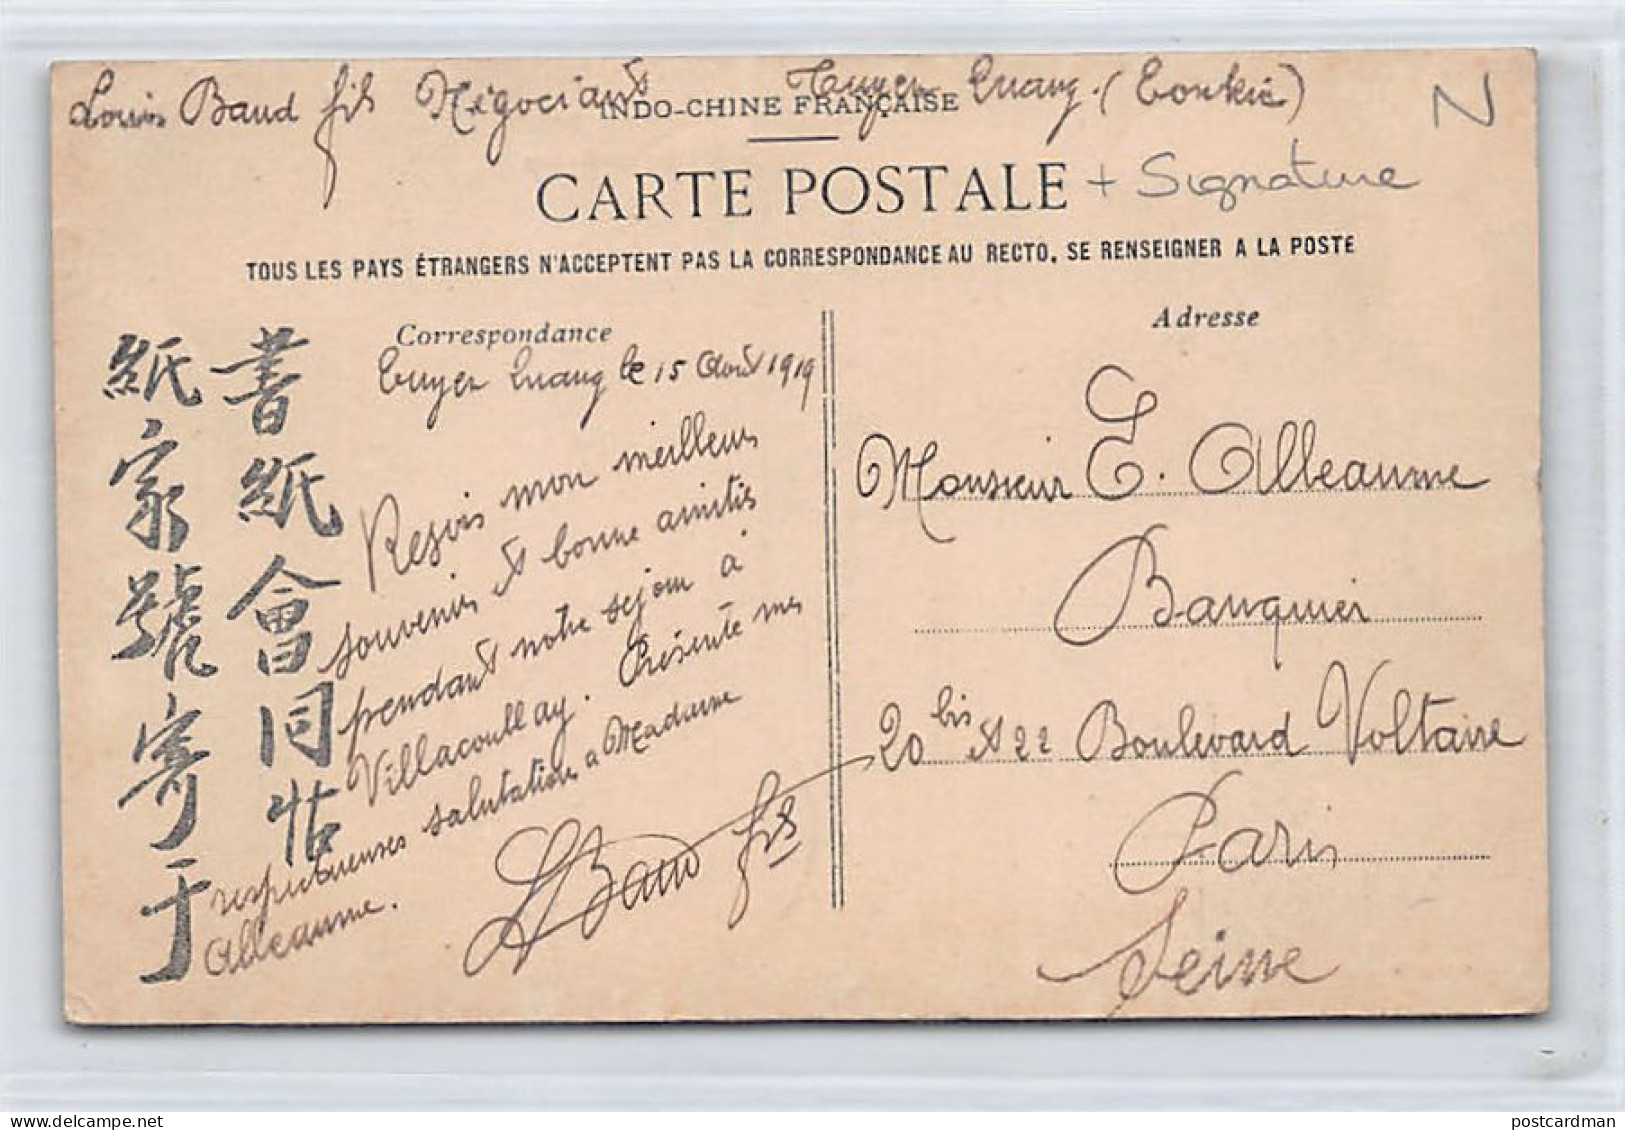 Louis Baud fils Négociant Tuyen Quang. (Tonkin)
N
INDO-CHINE FRANÇAISE
CARTE POSTALE
+ Signature
TOUS LES PAYS ÉTRANGERS N'ACCEPTENT PAS LA CORRESPONDANCE AU RECTO, SE RENSEIGNER A LA POSTE
Correspondance
Tuyen Quang le 15 Août 1919
Reçois mon meilleur
souvenir et bonne amitié
pendant notre sejour à
Villacoublay. Présente mes
respectueuses salutations a Madame
Alleaume.
L Baud fils
書紙會同帖
紙家號寄于
Adresse
Monsieur E. Alleaume
Banquier
20 bis et 22 Boulevard Voltaire
Paris
Seine
postcardman